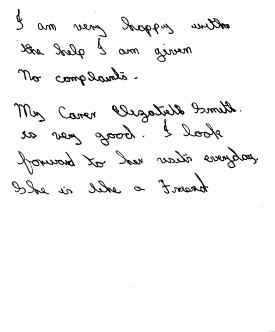 I am very happy with
the help I am given
No complaints.
My Carer Elizabeth Smith.
is very good. I look
forward to her visits everyday.
She is like a Friend